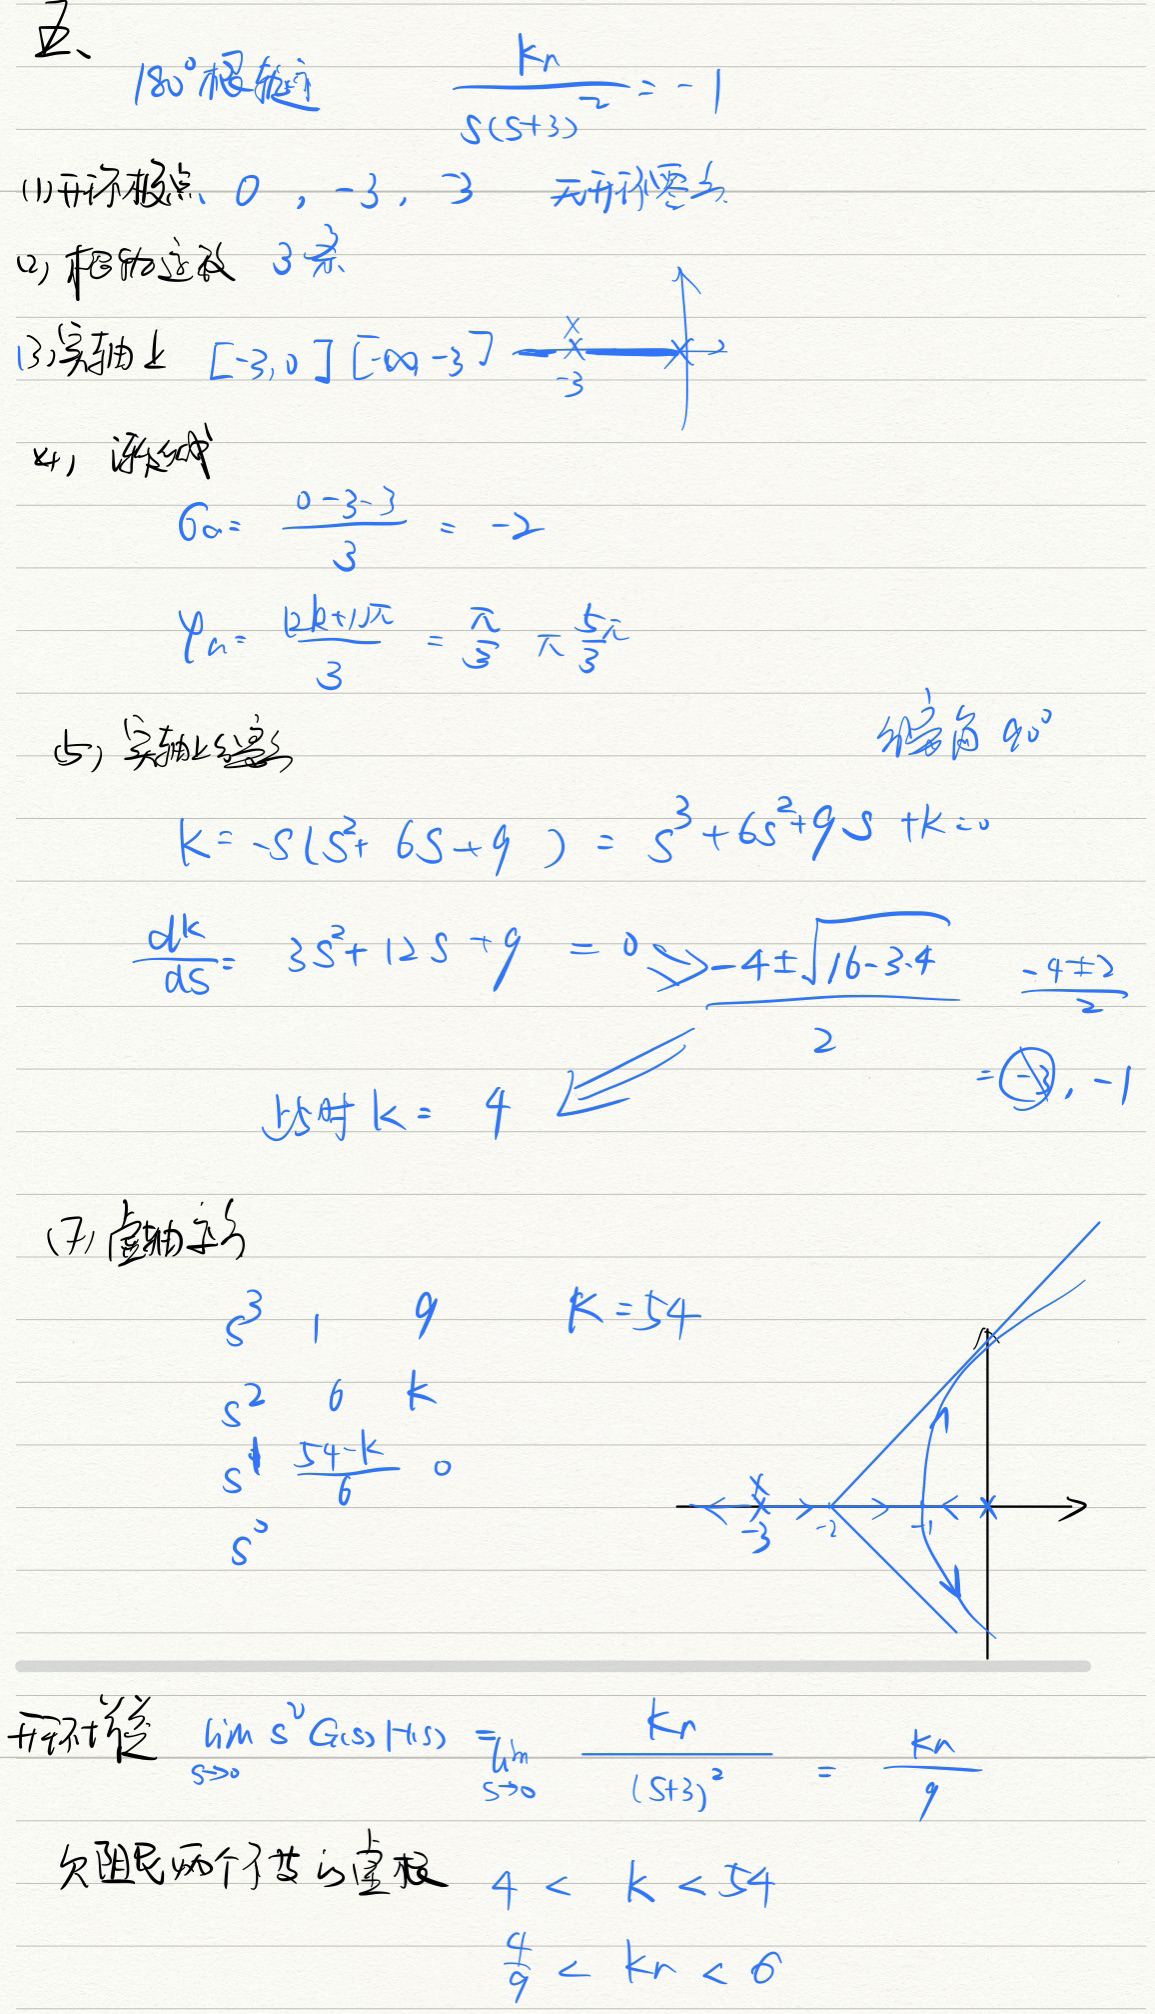 五、
180°根轨迹 Kr / s(s+3)² = -1
(1) 开环极点、0 , -3, -3 无开环零点
(2) 根轨迹数 3条
(3) 实轴上 [-3,0] [-∞,-3] -3
(4) 渐近线
σa = (0-3-3)/3 = -2
φa = (2k+1)π/3 = π/3 π 5/3π
(5) 实轴上分离点 分离角 90°
K = -s(s²+6s+9) = s³+6s²+9s+k=0
dk/ds = 3s²+12s+9 = 0 ⇒ (-4±√(16-3·4))/2 (-4±2)/2
= -3, -1
此时 k = 4
(7) 虚轴交点
s³ 1 9 K=54
s² 6 k
s¹ (54-k)/6 0
s⁰
-3 -2 -1
开环增益 lim s→0 s^ν G(s)H(s) = lim s→0 Kr/(s+3)² = Kr/9
欠阻尼 两个 虚根 4 < k < 54
4/9 < kr < 6